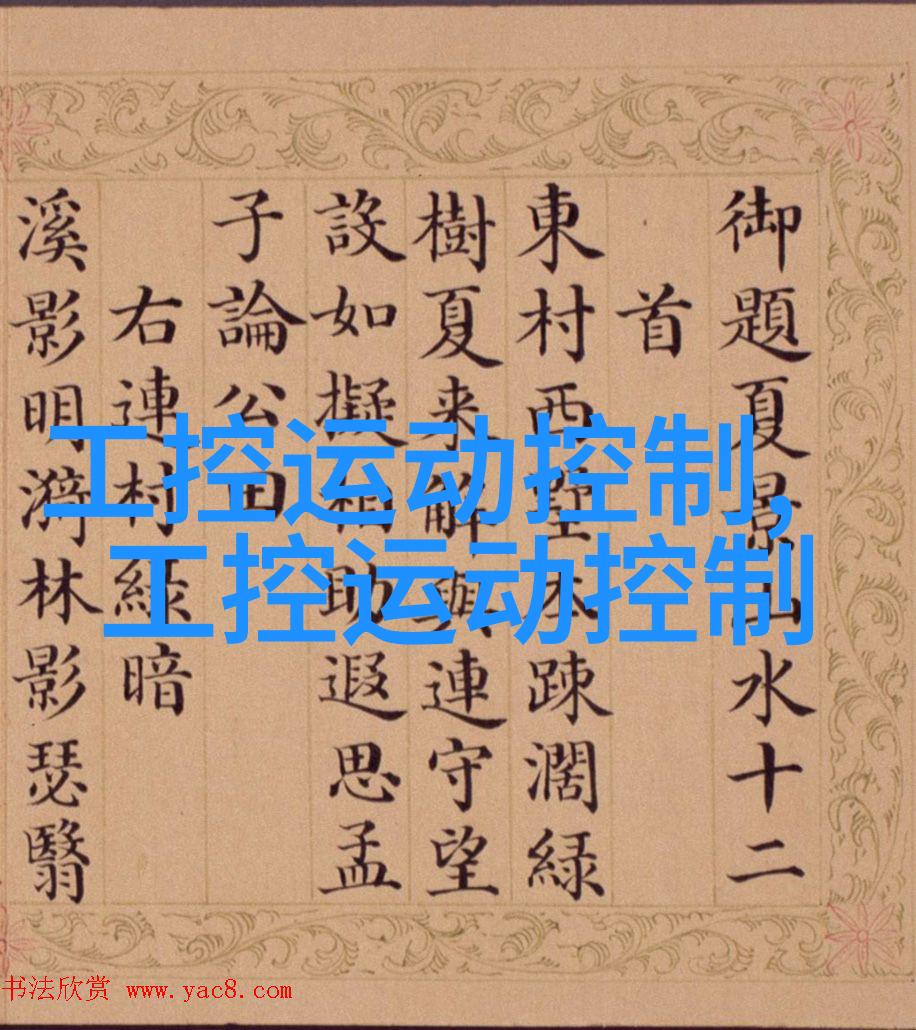 御題夏景山水十二
首
東村西墅本疎濶緑
樹夏来解與連守望
設如擬相助遐思孟
子論公田
右連村緑暗
溪影明漪林影瑟翳
工控运动控制,
工控运动控制
书法欣赏 www.yac8.com